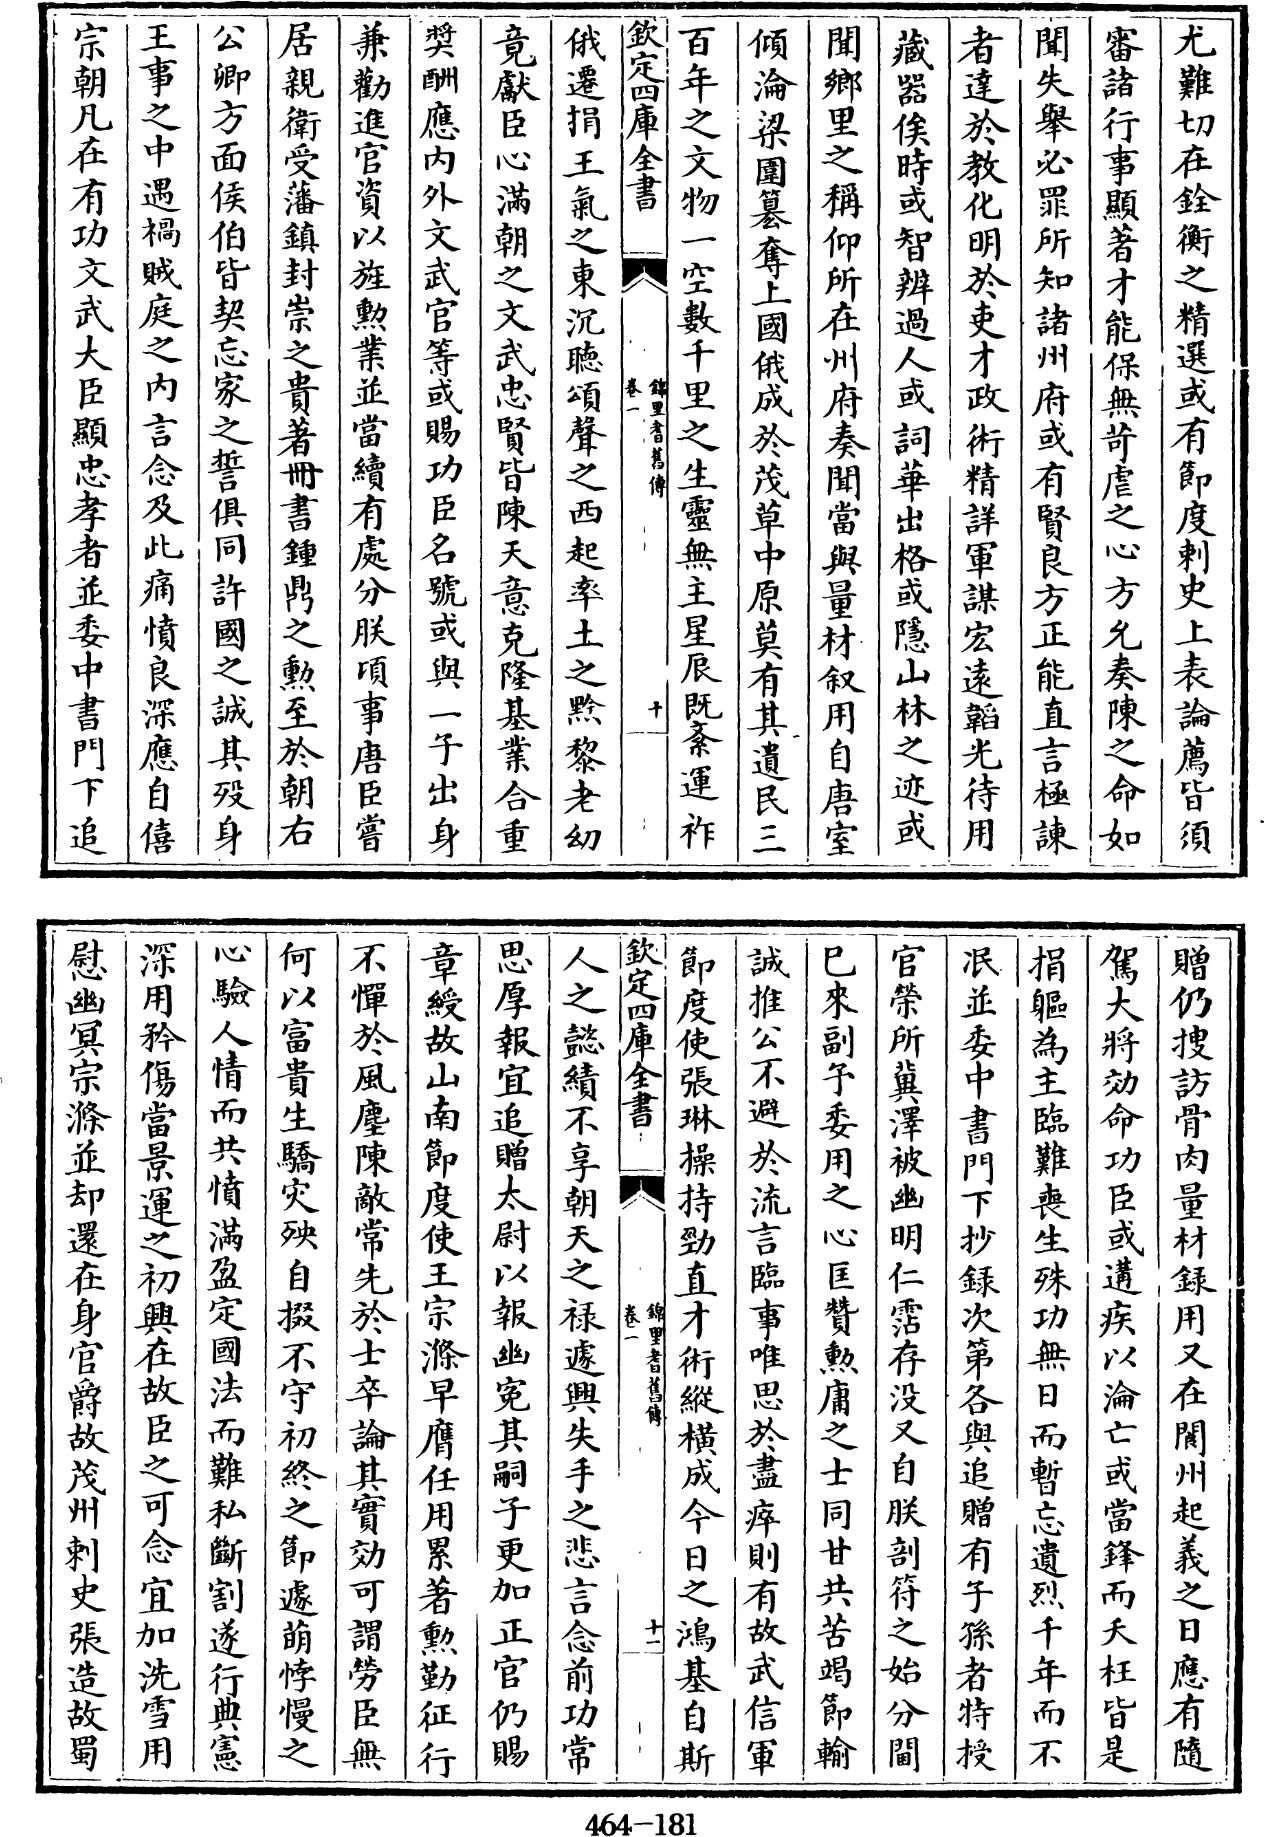 尤難切在銓衡之精選或有節度刺史上表論薦皆須
審諸行事顯著才能保無苛虐之心方允奏陳之命如
聞失舉必罪所知諸州府或有賢良方正能直言極諫
者達於教化明於吏才政術精詳軍謀宏遠韜光待用
藏器俟時或智辨過人或詞華出格或隱山林之迹或
聞鄉里之稱仰所在州府奏聞當與量材叙用自唐室
傾淪梁圍簒奪上國俄成於茂草中原莫有其遺民三
百年之文物一空數千里之生靈無主星辰既紊運祚
欽定四庫全書
錦里耆舊傳
卷一
十
俄遷捐王氣之東沉聴頌聲之西起率土之黔黎老幼
竟獻臣心滿朝之文武忠賢皆陳天意克隆基業合重
奬酬應内外文武官等或賜功臣名號或與一子出身
兼勸進官資以旌勲業並當續有處分朕頃事唐臣嘗
居親衛受藩鎮封崇之貴著冊書鍾鼎之勲至於朝右
公卿方面侯伯皆契忘家之誓俱同許國之誠其殁身
王事之中遇禍賊庭之内言念及此痛憤良深應自僖
宗朝凡在有功文武大臣顯忠孝者並委中書門下追
贈仍搜訪骨肉量材録用又在閬州起義之日應有隨
駕大將効命功臣或遘疾以淪亡或當鋒而夭枉皆是
捐軀為主臨難喪生殊功無日而暫忘遺烈千年而不
泯並委中書門下抄録次第各與追贈有子孫者特授
官榮所冀澤被幽明仁霑存没又自朕剖符之始分閫
已來副予委用之心匡贊勲庸之士同甘共苦竭節輸
誠推公不避於流言臨事唯思於盡瘁則有故武信軍
節度使張琳操持勁直才術縱橫成今日之鴻基自斯
欽定四庫全書
錦里耆舊傳
卷一
十一
人之懿績不享朝天之禄遽興失手之悲言念前功常
思厚報宜追贈太尉以報幽寃其嗣子更加正官仍賜
章綬故山南節度使王宗滌早膺任用累著勲勤征行
不憚於風塵陳敵常先於士卒論其實効可謂勞臣無
何以富貴生驕灾殃自掇不守初終之節遽萌悖慢之
心驗人情而共憤滿盈定國法而難私斷割遂行典憲
深用矜傷當景運之初興在故臣之可念宜加洗雪用
慰幽冥宗滌並却還在身官爵故茂州刺史張造故蜀
464-181